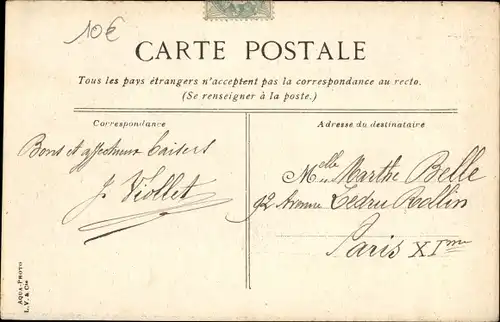 10€
CARTE POSTALE
Tous les pays étrangers n'acceptent pas la correspondance au recto.
(Se renseigner à la poste.)
Correspondance
Bons et affectueux baisers
J. Viollet
Adresse du destinataire
Melle Marthe Belle
92 Avenue Ledru Rollin
Paris XIme
AQUA-PHOTO
L. V. & Cie